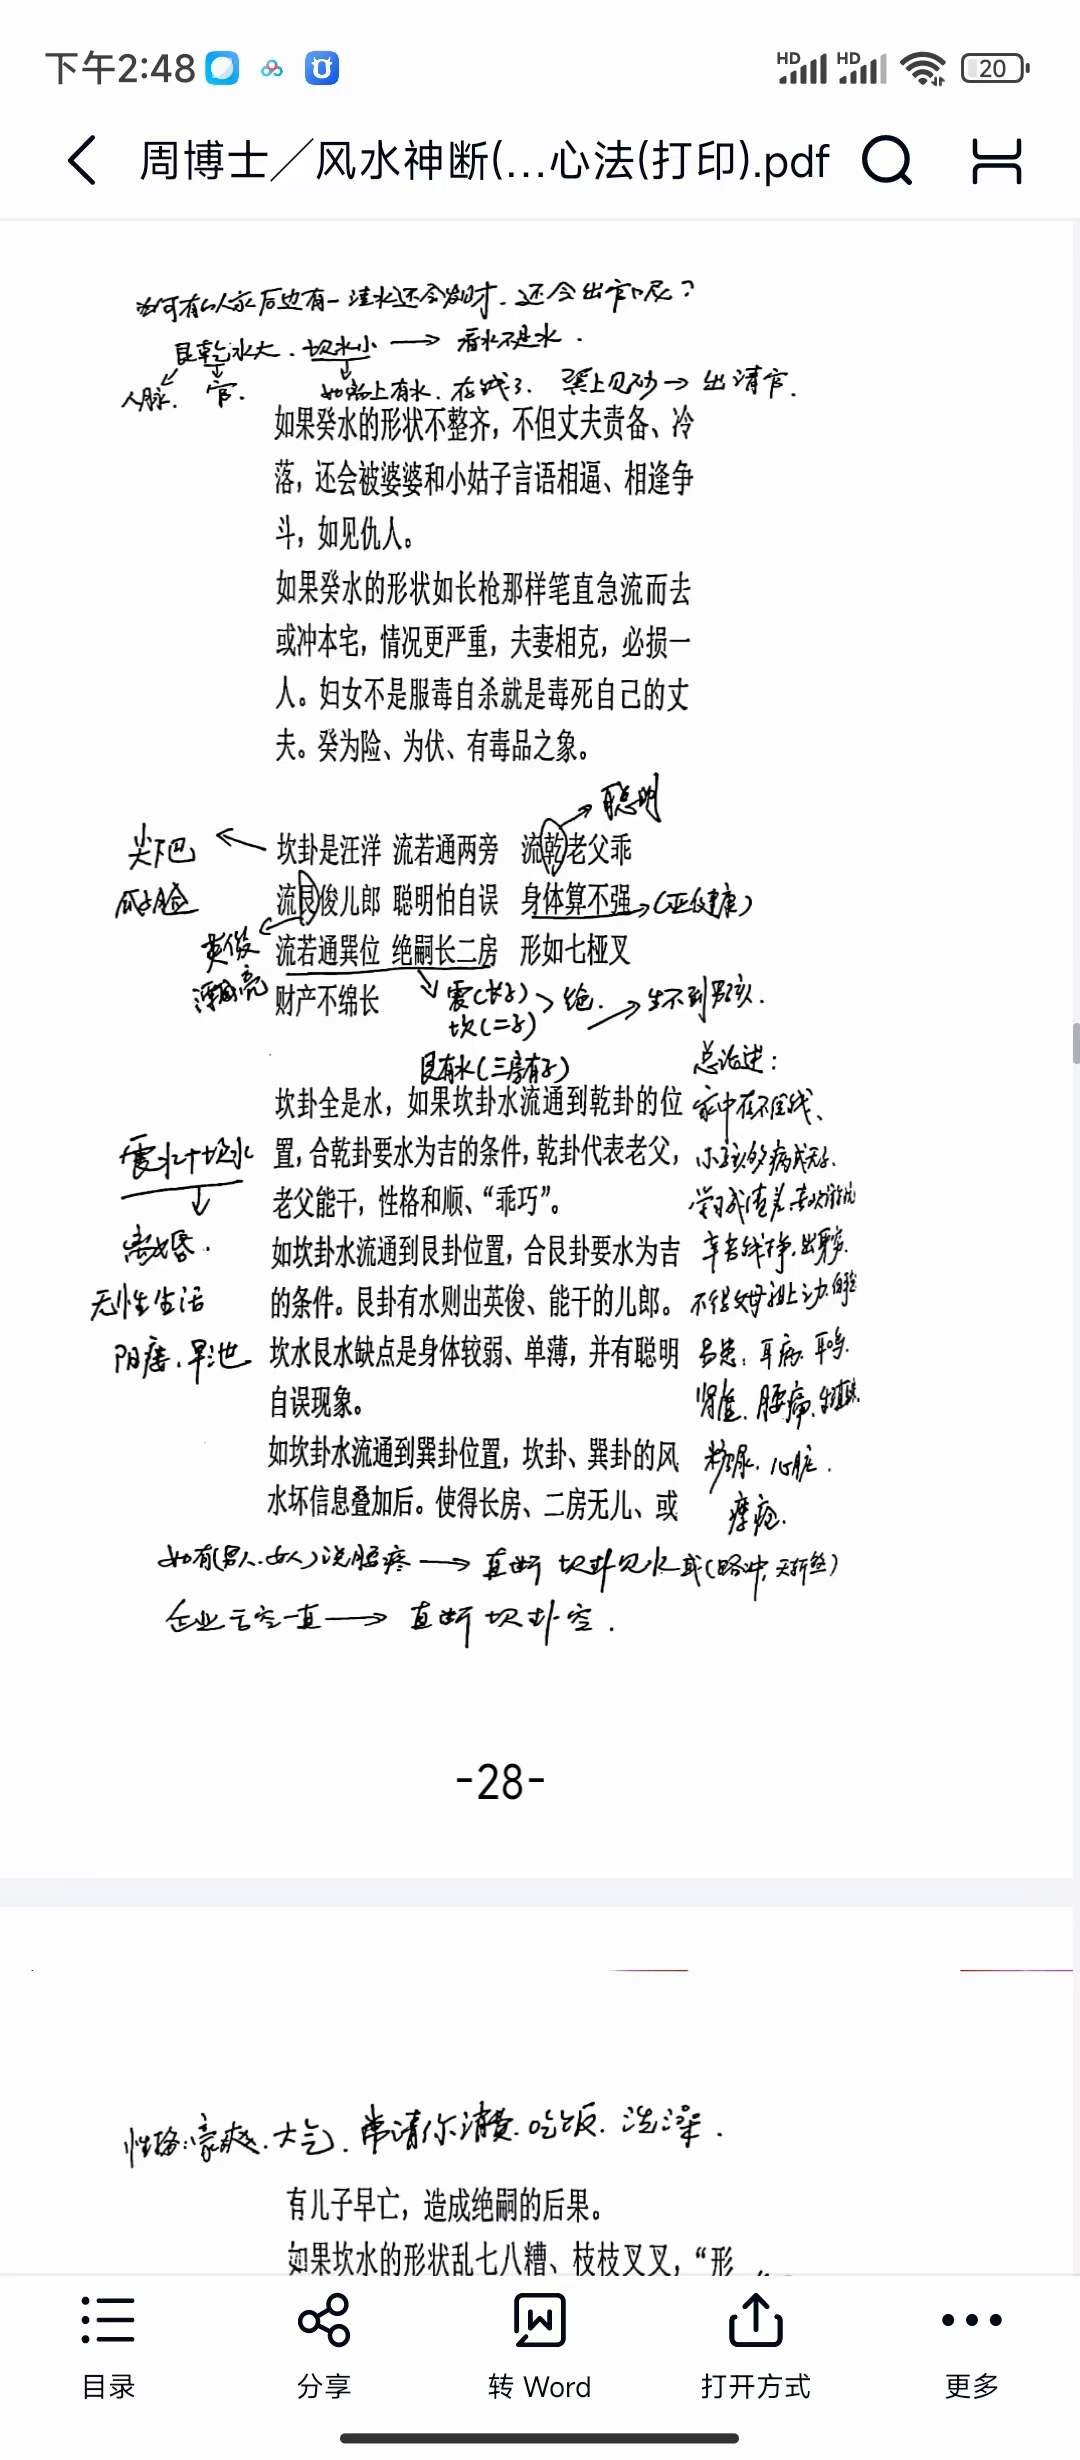 下午2:48
HD
HD
20
周博士／风水神断(...心法(打印).pdf
为何有的人家后边有一洼水还会发财、还会出官呢？
艮乾水大、坎水小 → 看水不是水。
人脉、官、
如路上有水、存钱了、巽上见砂 → 出清官.
如果癸水的形状不整齐，不但丈夫责备、冷
落，还会被婆婆和小姑子言语相逼、相逢争
斗，如见仇人。
如果癸水的形状如长枪那样笔直急流而去
或冲本宅，情况更严重，夫妻相克，必损一
人。妇女不是服毒自杀就是毒死自己的丈
夫。癸为险、为伏、有毒品之象。
聪明
尖下巴
坎卦是汪洋 流若通两旁 流乾老父乖
瓜子脸
流艮俊儿郎 聪明怕自误 身体算不强 (亚健康)
英俊
漂亮
流若通巽位 绝嗣长二房 形如七桠叉
财产不绵长
震(长子)
坎(二子)
绝. → 生不到男孩.
艮有水(三房有子)
坎卦全是水，如果坎卦水流通到乾卦的位
置，合乾卦要水为吉的条件，乾卦代表老父，
老父能干，性格和顺、“乖巧”。
如坎卦水流通到艮卦位置，合艮卦要水为吉
的条件。艮卦有水则出英俊、能干的儿郎。
坎水艮水缺点是身体较弱、单薄，并有聪明
自误现象。
如坎卦水流通到巽卦位置，坎卦、巽卦的风
水坏信息叠加后。使得长房、二房无儿、或
震水+坎水
离婚.
无性生活
阳痿、早泄
总论述：
家中存不住钱、
小孩多病或夭.
易患：耳病、耳鸣.
肾虚、腰痛、
糖尿、心脏.
如有(男人、女人)说腰疼 → 直断 坎卦见水或(路冲,天斩煞)
企业亏空一直 → 直断坎卦空.
-28-
性格:豪爽、大气、常请你消费、吃饭、洗澡.
有儿子早亡，造成绝嗣的后果。
如果坎水的形状乱七八糟、枝枝叉叉，“形
目录
分享
转 Word
打开方式
更多